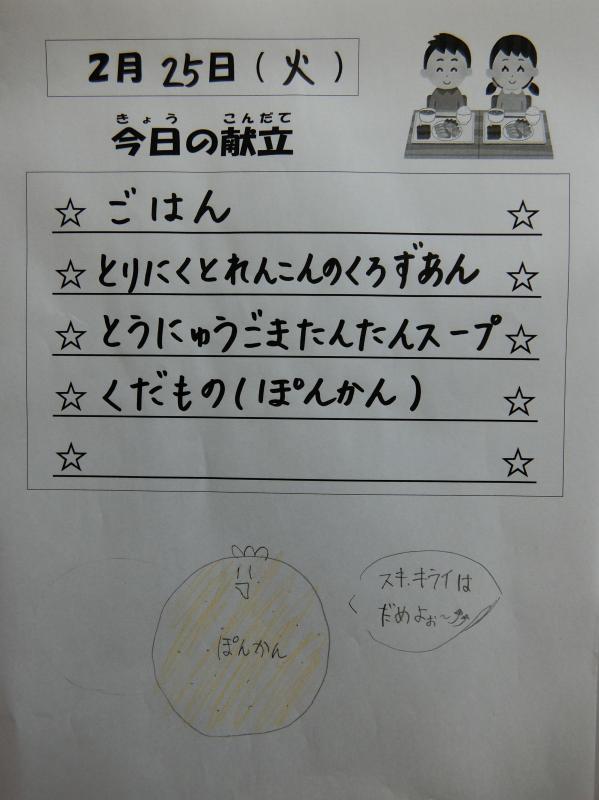 2月 25日(火)
きょう こんだて
今日の献立
☆ ごはん ☆
☆ とりにくとれんこんのくろずあん ☆
☆ とうにゅうごまたんたんスープ ☆
☆ くだもの(ぽんかん) ☆
☆ ☆
スキ、キライは
だめよぉ～
ぽんかん